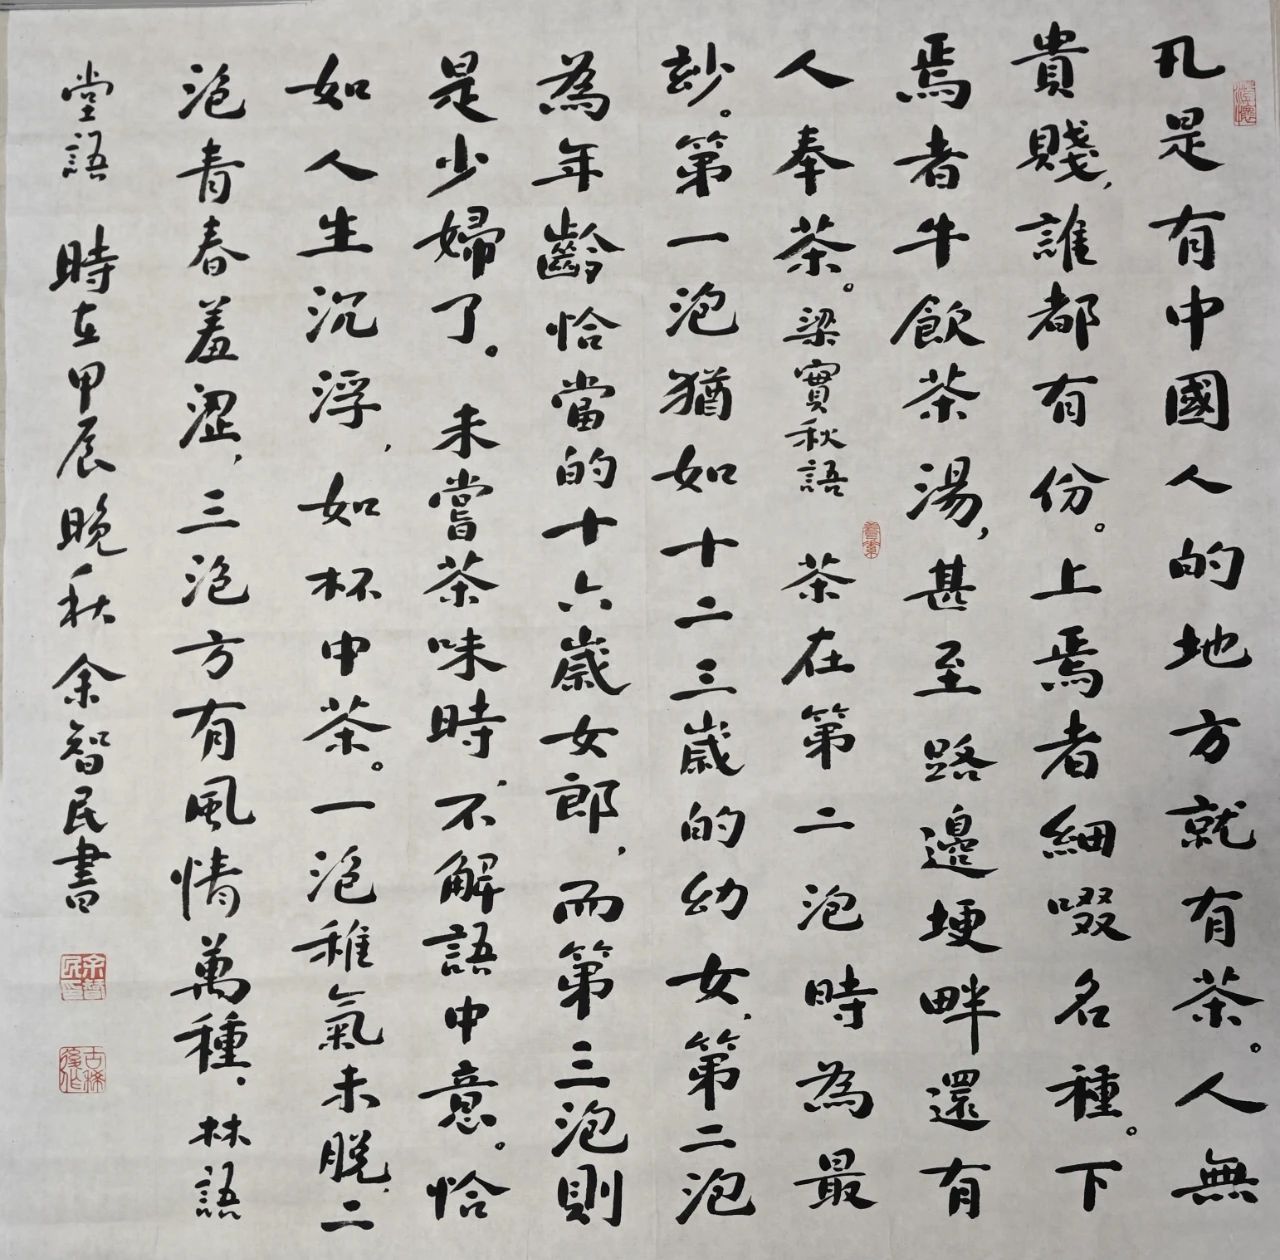 凡是有中國人的地方就有茶。人無
貴賤,誰都有份。上焉者細啜名種。下
焉者牛飲茶湯,甚至路邊埂畔還有
人奉茶。梁實秋語 茶在第二泡時為最
玅。第一泡猶如十二三歲的幼女,第二泡
為年齡恰當的十六歲女郎,而第三泡則
是少婦了。未嘗茶味時,不解語中意。恰
如人生沉浮,如杯中茶。一泡稚氣未脫,二
泡青春羞澀,三泡方有風情萬種,林語
堂語 時在甲辰晚秋余智民書
古稀後作